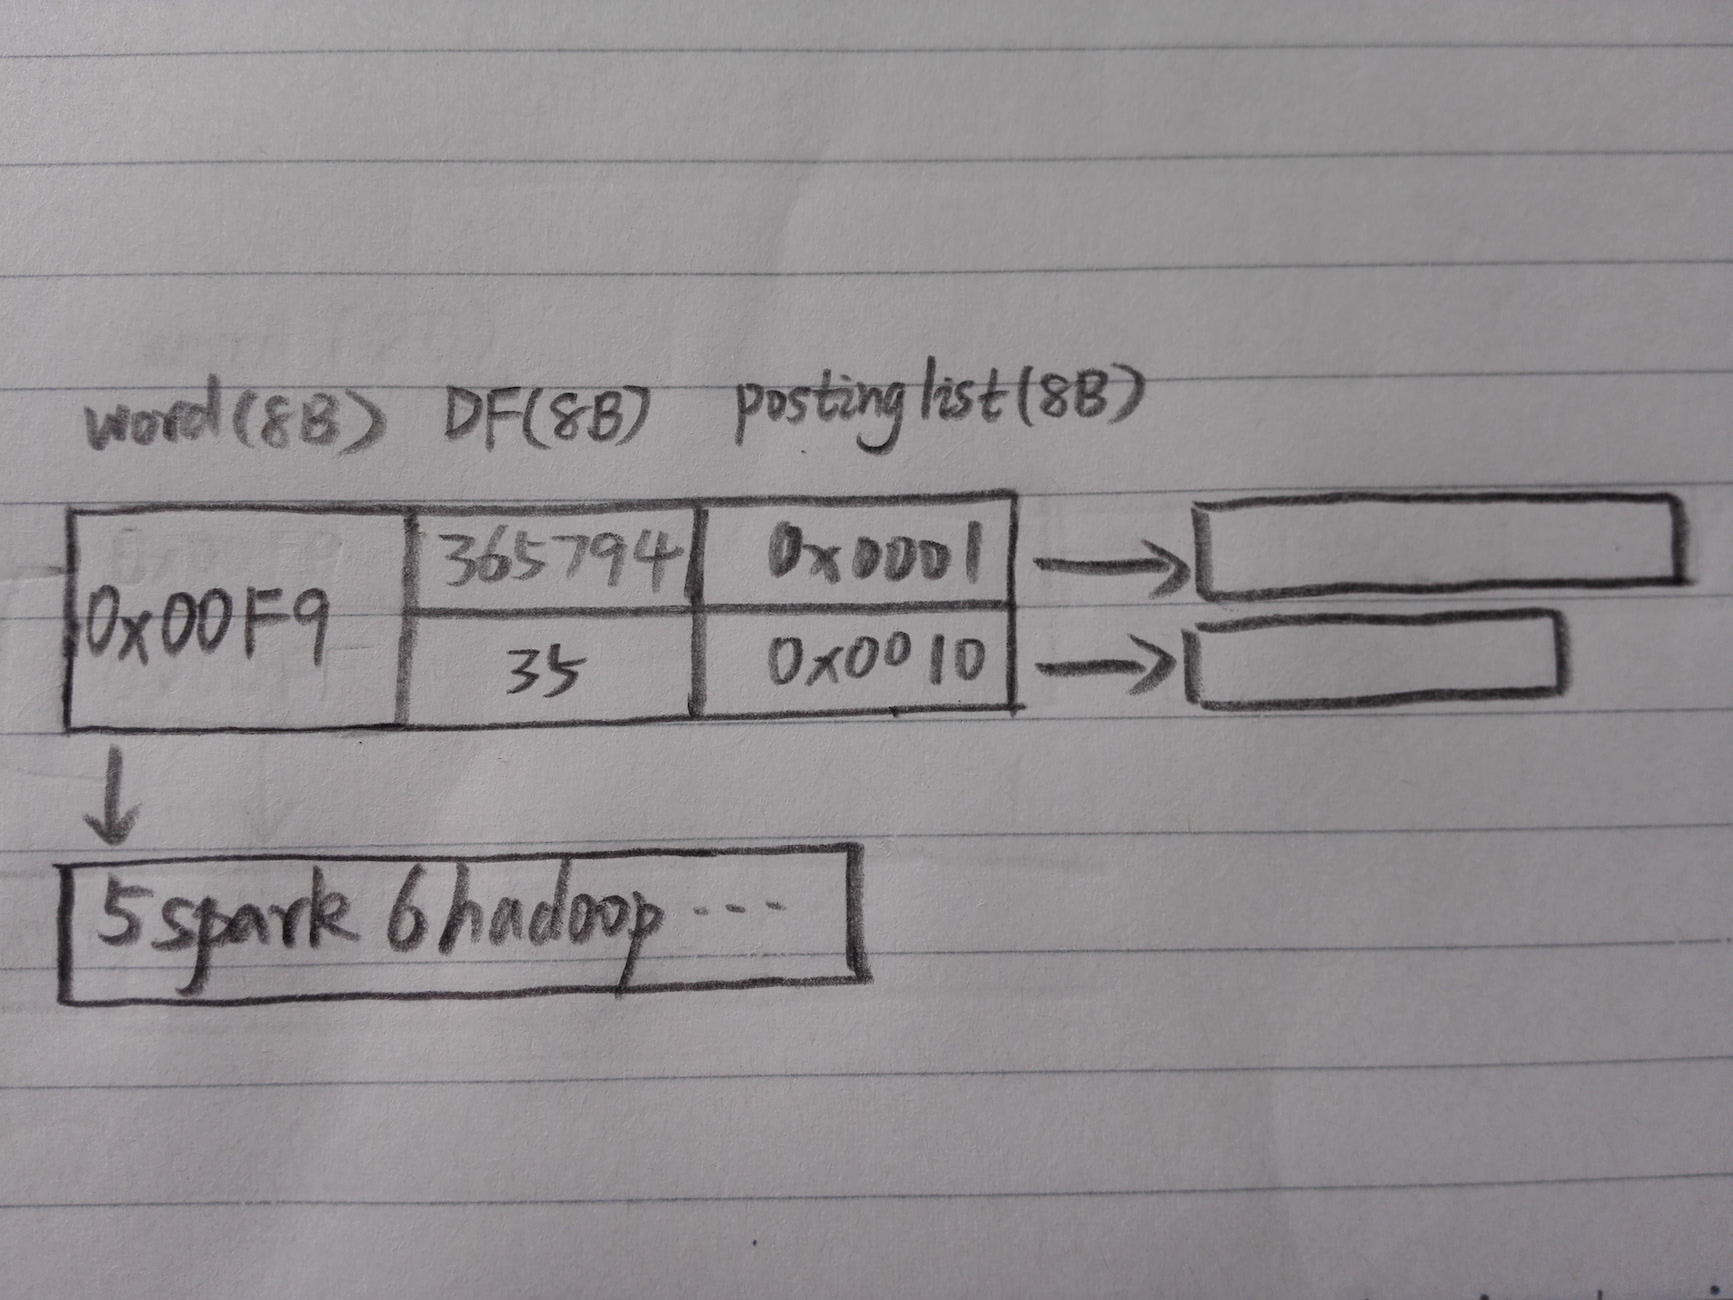 word(8B) DF(8B) posting list(8B)
0x00F9 365794 0x0001
35 0x0010
5spark 6hadoop ----